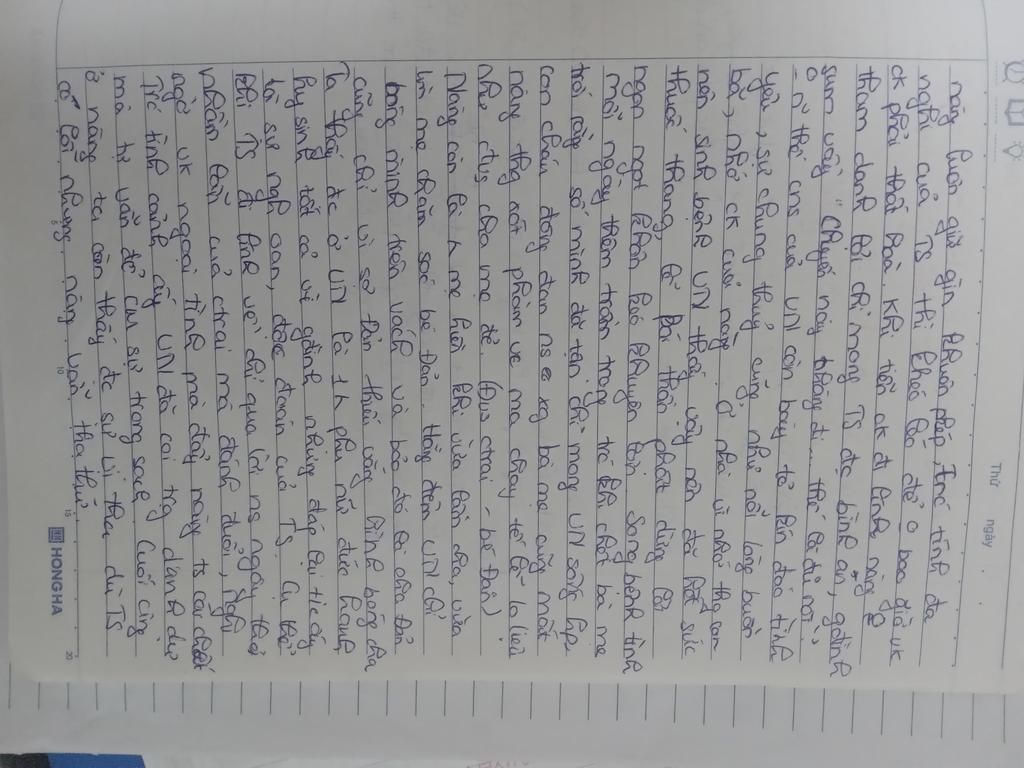 Thứ ngày
nàng luôn giữ gìn khuôn phép. Trc tính đa
nghi của TS thì khéo léo để o bao giờ vk
ck phải thất hoà. Khi tiễn ck đi lính nàng o
tham danh lợi chỉ mong TS đc bình an, gđình
sum vầy "Chuyến này chàng đi.... thế là đủ rồi".
- n~ thế cns của VN còn bày tỏ lên đao tình
yêu, sự chung thuỷ cũng như nỗi lòng buồn
bã, nhớ ck của nàng. Ở nhà vì nhớ thg con
nên sinh bệnh VN thấy vậy nên đã hết sức
thuốc thang, lễ bái thần phật dùng lời
ngon ngọt khôn khéo khuyên lơn song bệnh tình
mỗi ngày thêm trầm trọng trc khi chết bà mẹ
trối rằng số mình đã tận chỉ mong VN sống hp,
con cháu đông đàn ns xg bà mẹ cũng mất
nàng thg xót phàm vc ma chay tế lễ lo liệu
như đvs cha mẹ đẻ. (Đvs con trai - bé Đản)
Nàng còn là 1 mẹ hiền khi vừa làm cha, vừa
làm mẹ chăm sóc bé Đản. Hằng đêm VN chỉ
bóng mình trên vách và bảo đó là cha Đản
cũng chỉ vì sợ Đản thiếu vắng hình bóng cha
Ta thấy đc ở VN là 1 ng phụ nữ đức hạnh,
hy sinh tất cả vì gđình nhưng đáp lại tic ấy
là sự nghi oan, độc đoán của TS. Cụ thể:
Khi TS đi lính về chỉ qua lời ns ngây thơ
nhân lần của trai mà đánh đuổi, nghi
ngờ vk ngoại tình mà đẩy nàng ts cái chết
Từ tình cảnh ấy VN đã coi trg danh dự
mà tự vẫn để cm sự trong sạch. Cuối cùng
ở nàng ta còn thấy đc sự vị tha dù TS
có lỗi nhưng nàng vẫn tha thứ
5 10 15 20
HONG HA